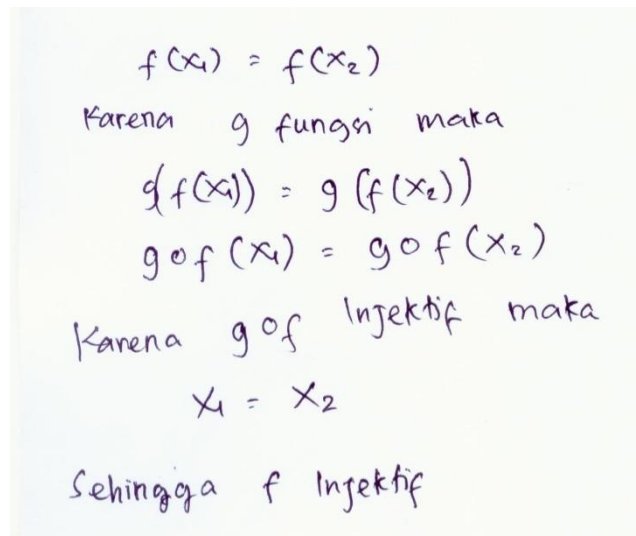 f(x₁) = f(x₂)
Karena g fungsi maka
g(f(x₁)) = g(f(x₂))
gof(x₁) = gof(x₂)
Karena gof Injektif maka
x₁ = x₂
Sehingga f Injektif